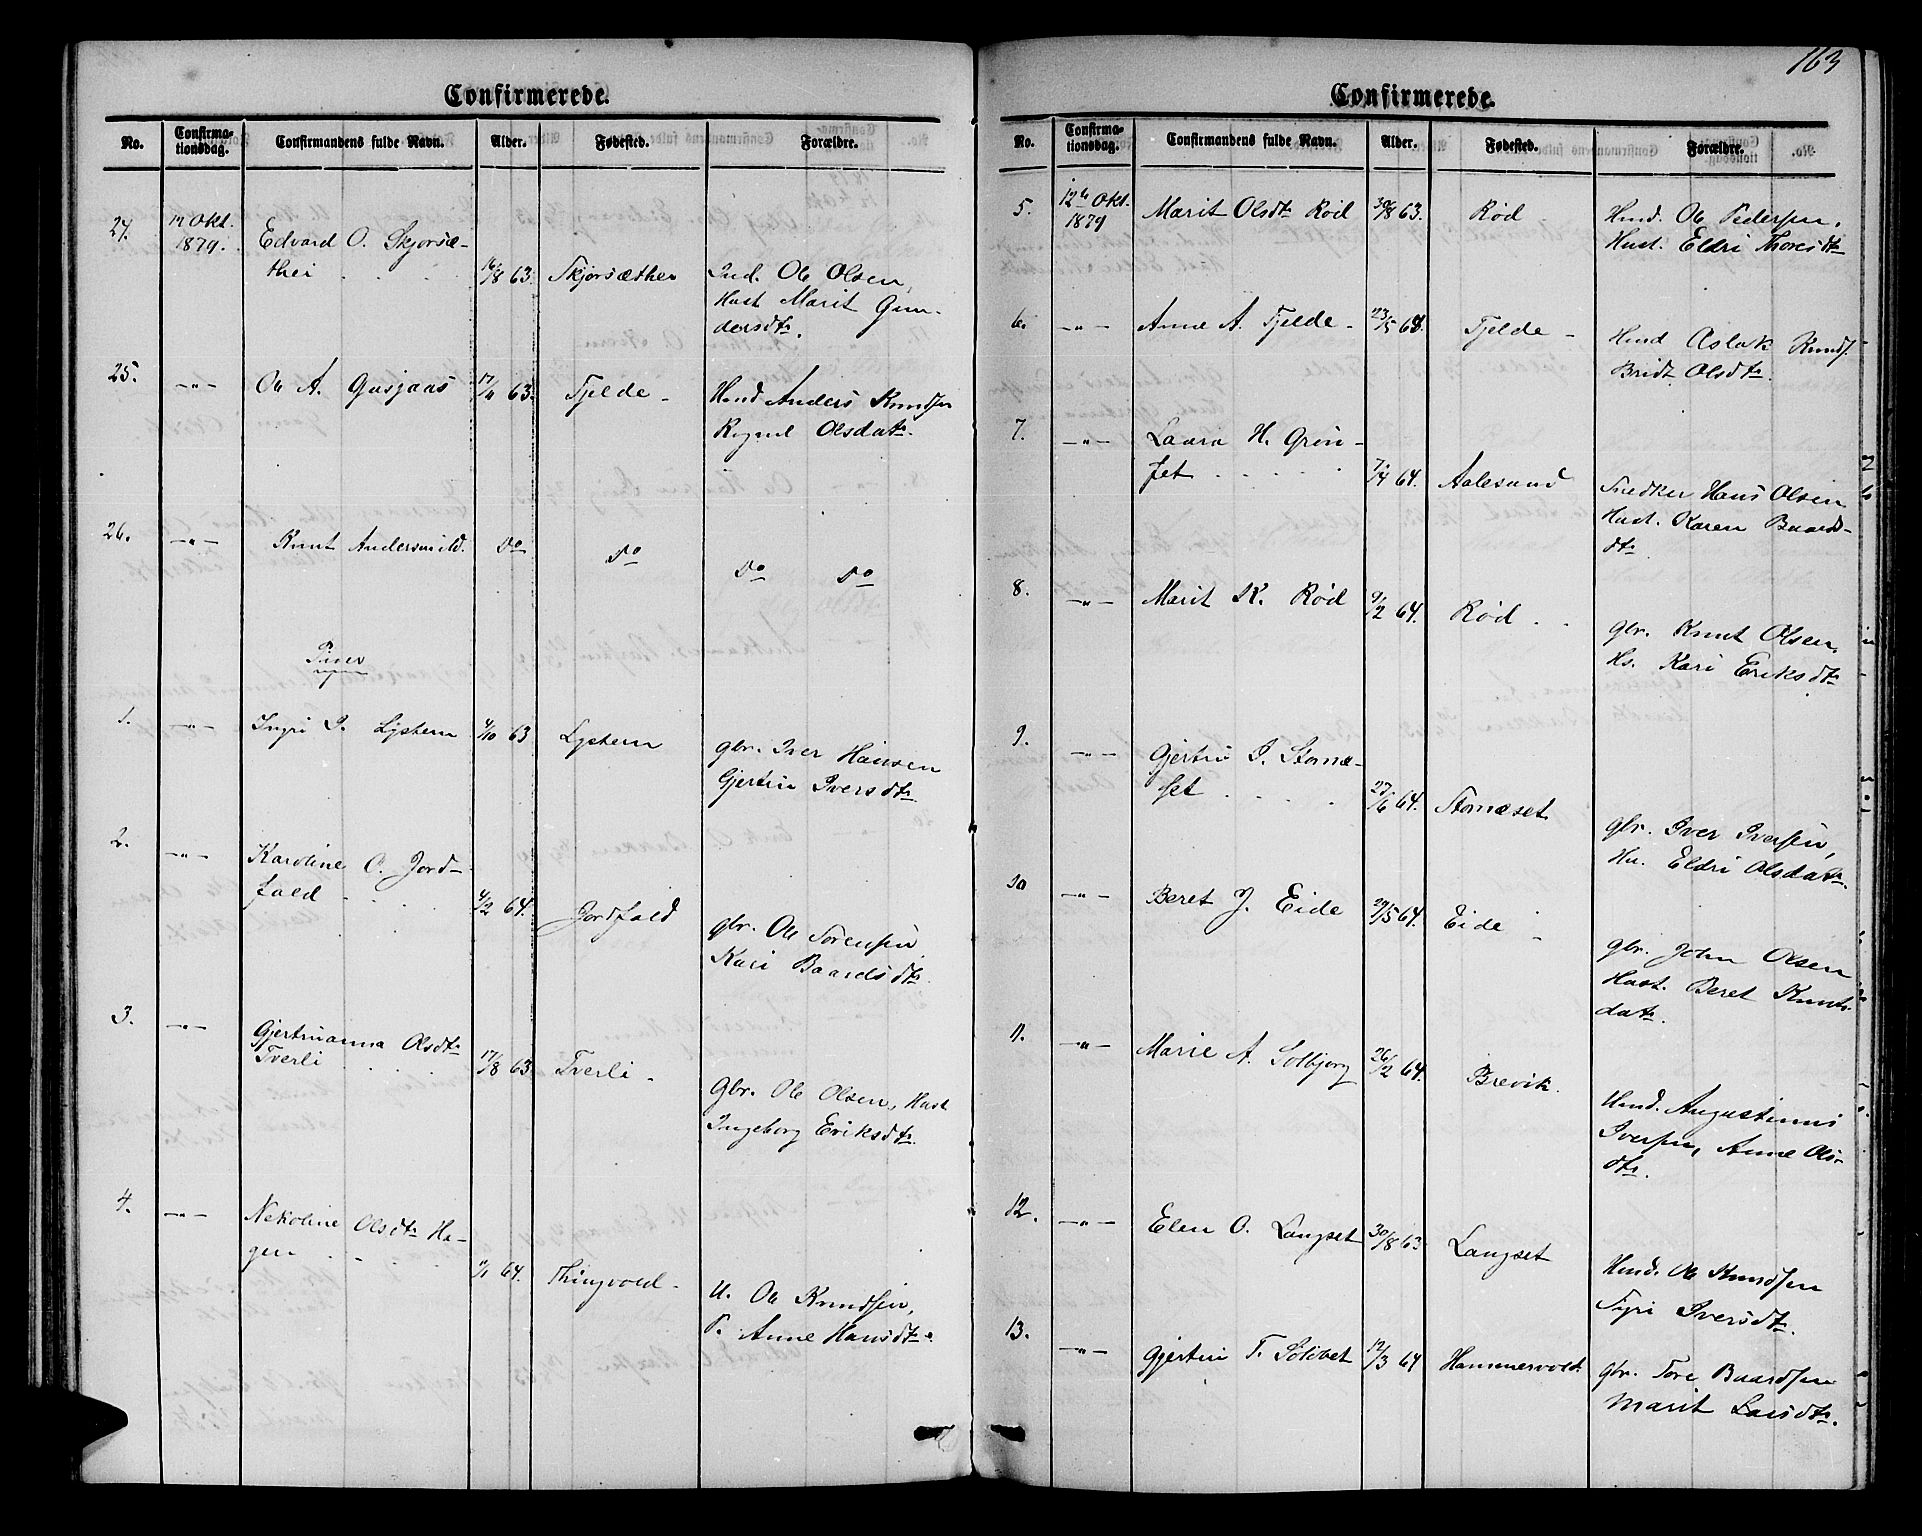 163
Confirmerede.
No. Confirma-tionsdag. Confirmandens fulde Navn. Alder. Fødested. Forældre.
27. 12 Okt. 1879. Edvard O. Skjorsæ-
thei 16/8 63. Skjorsæther Ind. Ole Olsen,
Hust Marit Gun-
dersdtr.
25. -"- Ole A. Gusjaas 17/11 63. Fjelde - Hmd Anders Knudsen
Olsdatr.
26. -"- Knut Andersmild. Do Do Do Do
Piger
1. -"- Ingri I. Lystem 4/10 63 Lystem gbr. Iver Hansen
Gjertru Iversdtr
2. -"- Karoline O. Jord-
fald 4/2 64. Jordfald gbr. Ole Sørensen
Kari Baardsdtr.
3. -"- Gjertruanna Olsdtr
Tverli 17/8 63 Tverli - Gbr. Ole Olsen, Hust
Ingeborg Eriksdtr.
4. -"- Nekoline Olsdtr Ha-
gen 64. Thingvold - U. Ole Knudsen,
P. Anne Hansdtr.
Confirmerede.
No. Confirma-tionsdag. Confirmandens fulde Navn. Alder. Fødested. Forældre.
5. 12te Okt. 1879 Marit Olsdtr Rød 30/8 63. Rød Hmd. Ole Pedersen,
Hust. Eldri Thoresdtr
6. -"- Anne A. Fjelde - 23/5 64. Fjelde - Hmd Aslak Knuds.
Bridt Olsdtr.
7. -"- Laura H. Grøn-
set 7/4 64. Aalesund Snedker Hans Olsen
Hust. Karen Baards-
dtr
8. -"- Marit K. Rød 9/2 64. Rød gbr. Knut Olsen,
Hs. Kari Eriksdtr
9. -"- Gjertru I. Stomæ-
set 27/6 64. Stomæset gbr. Iver Iversen,
Hu. Eldri Olsdatr.
10 -"- Beret J. Eide 29/5 64. Eide - gbr. John Olsen
Hust. Beret Knuts-
datr.
11. -"- Marie A. Solbjorg 26/2 64. Brevik. Hmd. Augustinus
Iversen, Anne Ols-
dtr.
12. -"- Elen O. Langset 30/8 63 Langset Hmd. Ole Knudsen
Syri Iversdtr.
13. -"- Gjertru T. Solset 12/3 64 Hammervold. gbr. Tore Baardsen
Marit Larsdtr.